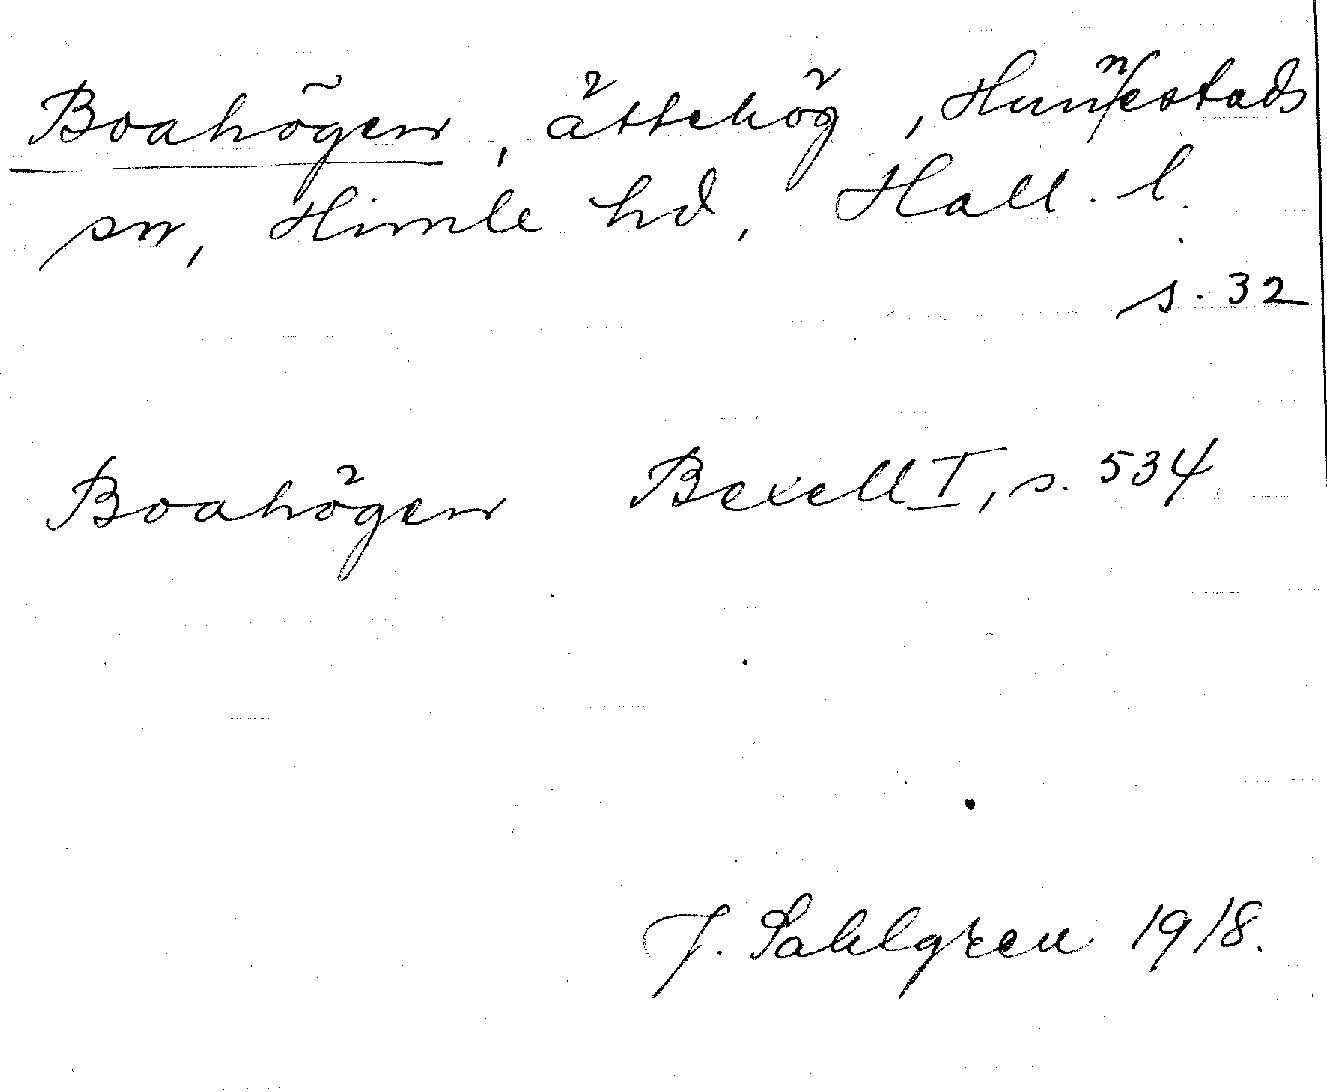 Boahögen, ättehög, Hunnestads
sn, Himle hd, Hall. l.
s. 32
Boahögen Bexell I, s. 534
J. Sahlgren 1918.